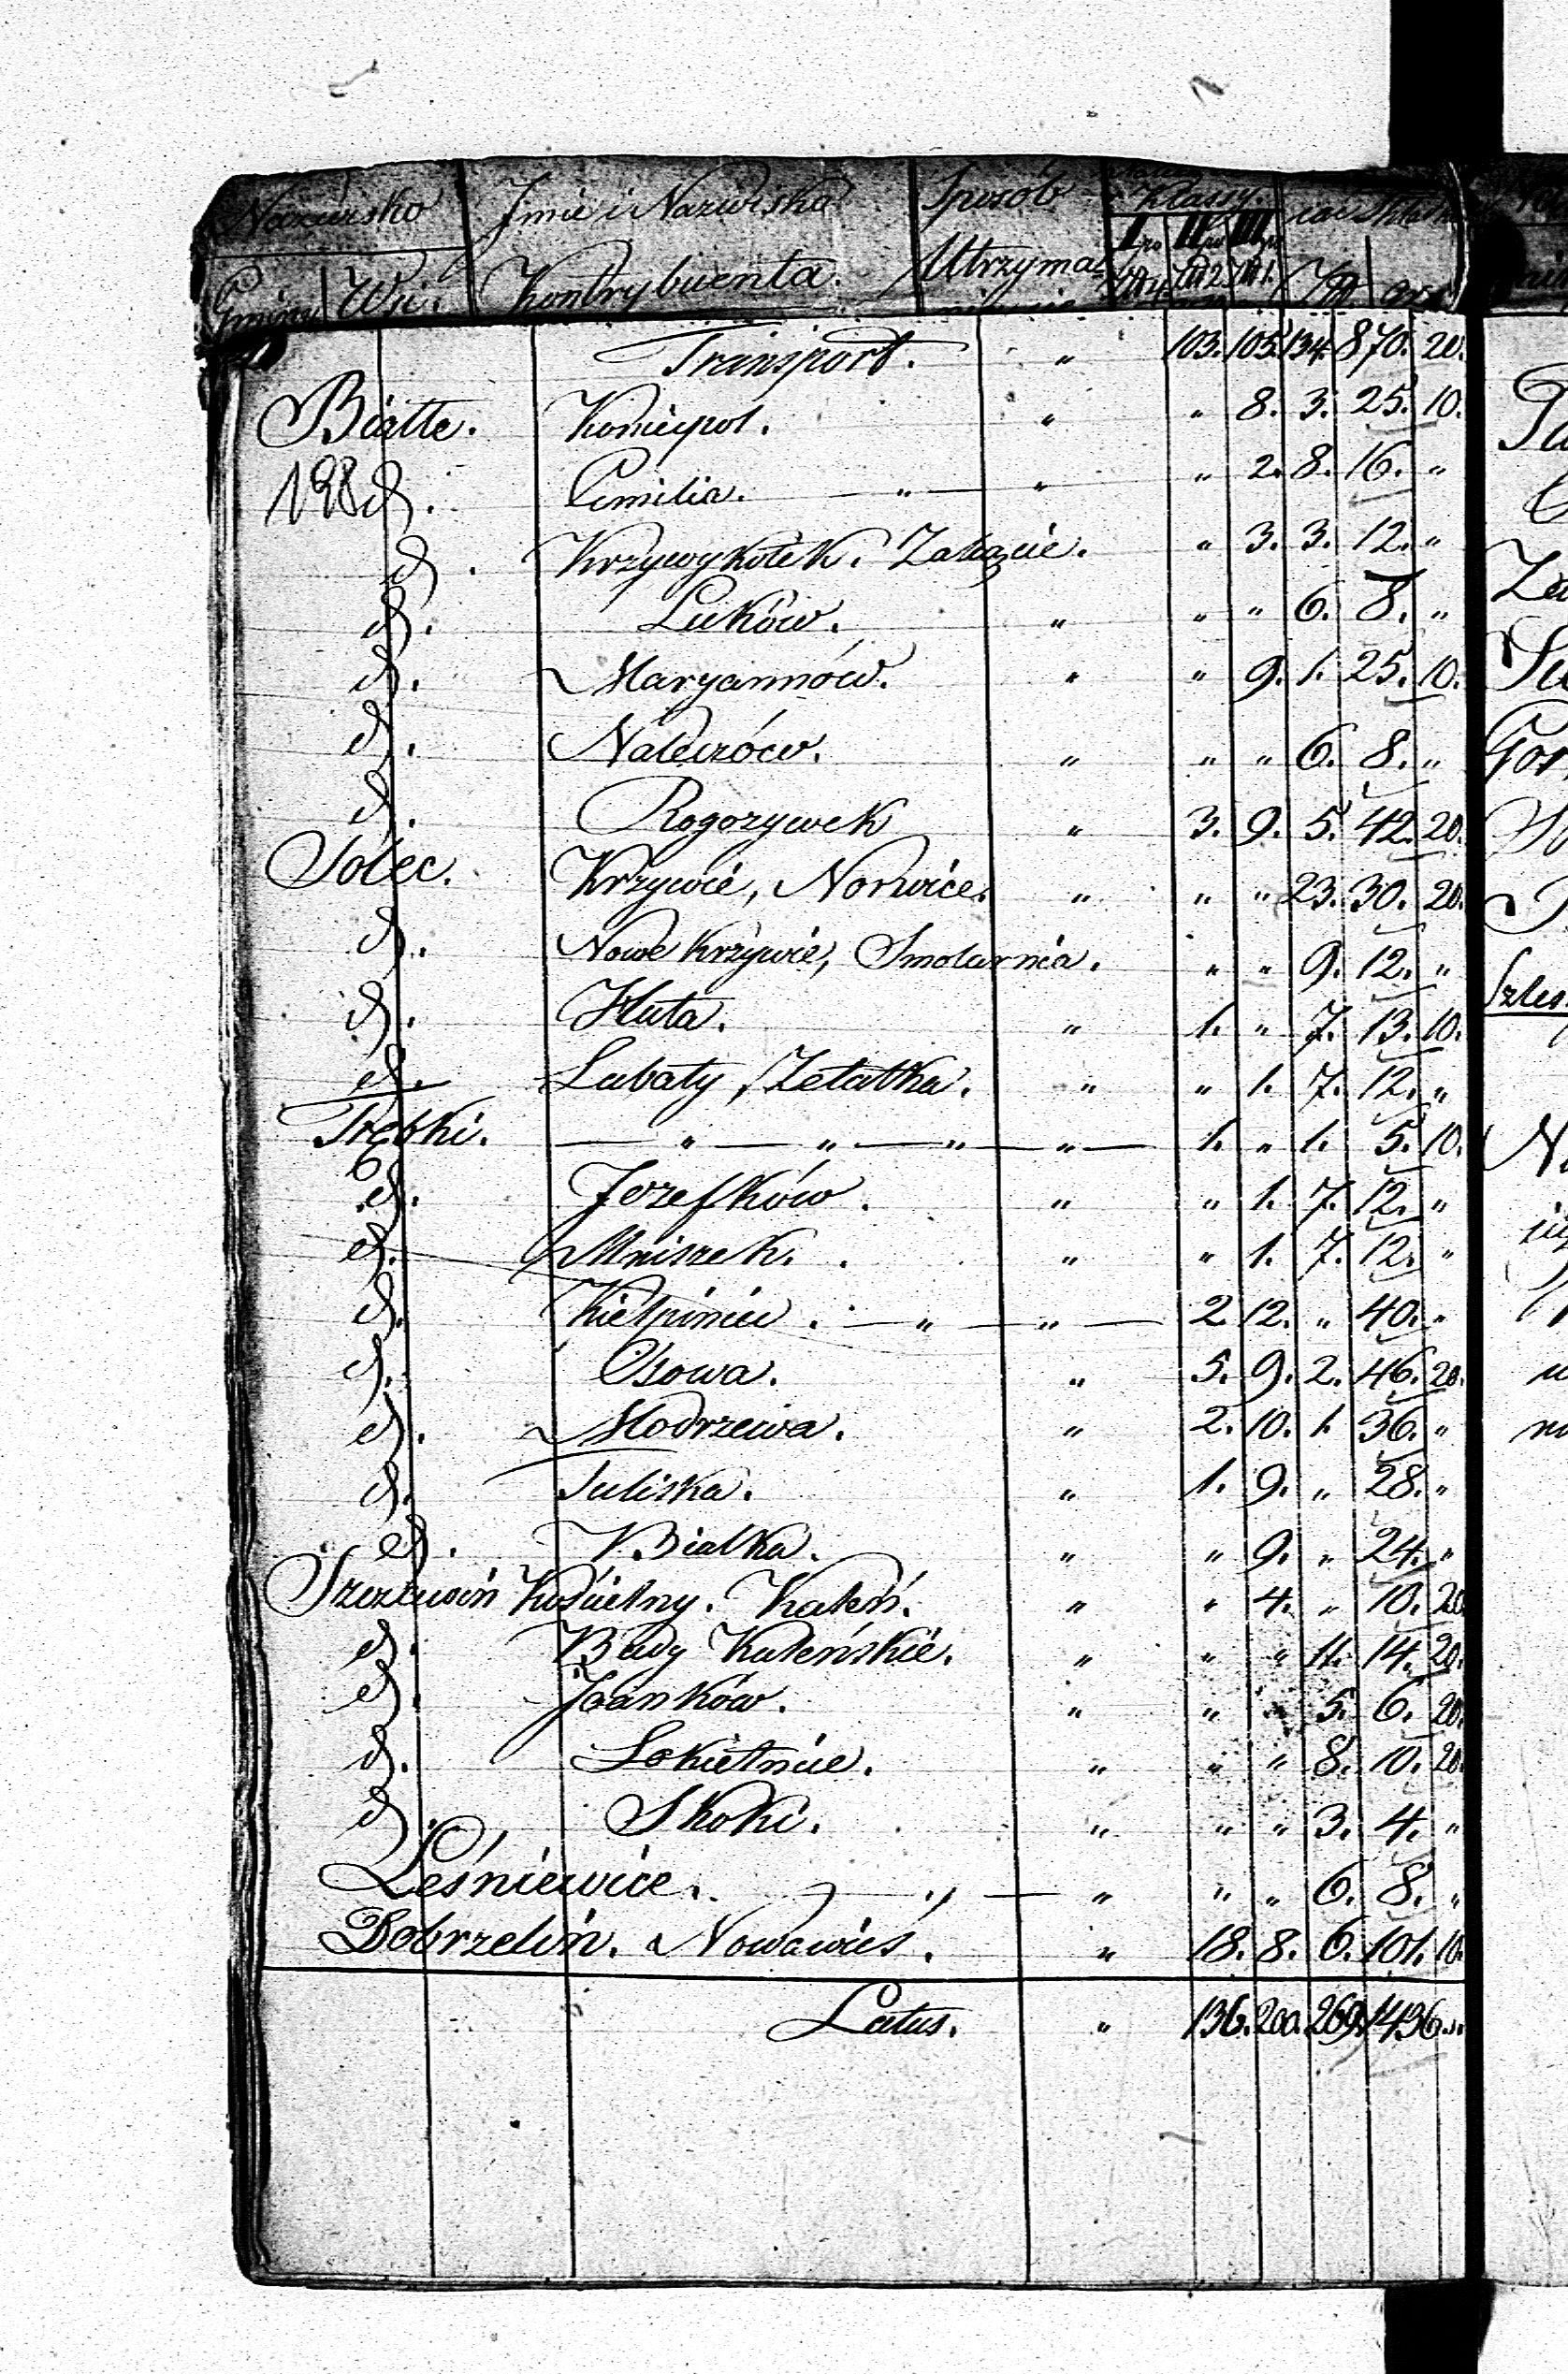 Nazwisko Jmie i Nazwisko Sposób Klassy.
Gminy Wsi. Kontrybuenta. Utrzyma
Transport. " 103. 105. 134. 870. 20.
Białłe. Koniecpol. " " 8. 3. 25. 10.
198 d. Emilia. " " " 2. 8. 16. "
d. Krzywykołek. Zakącie. " 3. 3. 12. "
d. Luków. " " " 6. 8. "
d. Maryannów. " " 9. 1. 25. 10.
d. Nałenzów. " " " 6. 8. "
d. Rogozywek " 3. 9. 5. 42. 20.
Solec. Krzywie, Norwice. " " " 23. 30. 20.
d. Nowe Krzywie, Smolarnia. " " 9. 12. "
d. Huta. " 1. " 7. 13. 10.
d. Lubaty, Zelatka. " " 1. 7. 12. "
Trębki. " " " " 1. " 1. 5. 10.
d. Jozefków. " " 1. 7. 12. "
d. Mniszek. " " 1. 7. 12. "
d. Kiełpiniec. " " 2. 12. " 40. "
d. Osowa. " 5. 9. 2. 46. 20.
d. Modrzewa. " 2. 10. 1. 36. "
d. Juliska. " 1. 9. " 28. "
d. Białka. " " 9. " 24. "
Szczawin Kościelny. Kaleń. " " 4. " 10. 20
d. Budy Kaleńskie. " " " 11. 14. 20.
d. Joanków. " " " 5. 6. 20.
d. Łokietnice. " " " 8. 10. 20.
d. Skoki. " " " 3. 4. "
Leśniewice. " " " " 6. 8. "
Dobrzelin. Nowawieś. " 18. 8. 6. 101. 10.
Latus. " 136. 200. 269. 1436. "